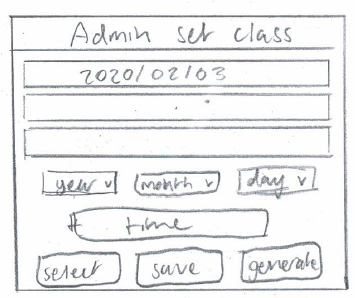 Admin set class
2020/02/03
year v month v day v
# time
select save generate